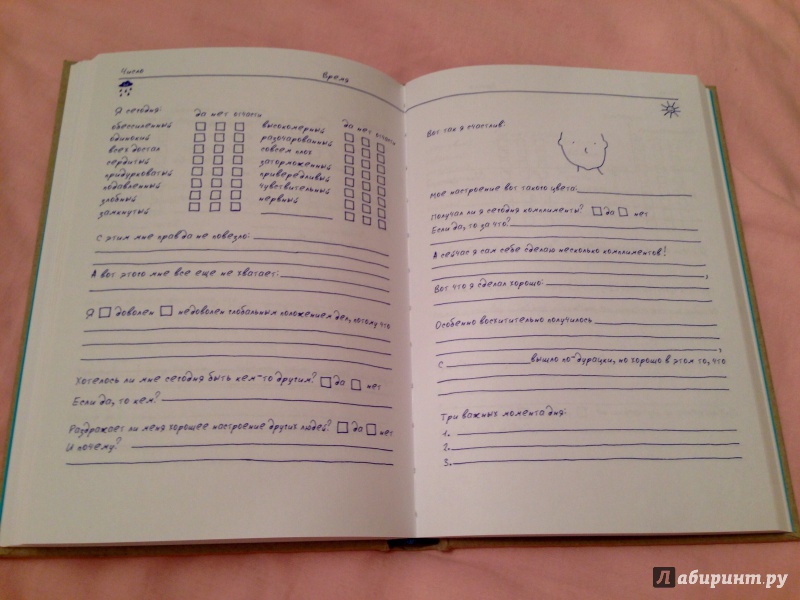 Число Время
Я сегодня: да нет отчасти
обессиленный
одинокий
всех достал
сердитый
придурковатый
подавленный
злобный
замкнутый
да нет отчасти
высокомерный
разочарованный
совсем плох
заторможенный
привередливый
чувствительный
нервный
С этим мне правда не повезло:
А вот этого мне все еще не хватает:
Я доволен недоволен глобальным положением дел, потому что
Хотелось ли мне сегодня быть кем-то другим? да нет
Если да, то кем?
Раздражает ли меня хорошее настроение других людей? да нет
И почему?
Вот так я счастлив:
Мое настроение вот такого цвета:
Получал ли я сегодня комплименты? да нет
Если да, то за что?
А сейчас я сам себе сделаю несколько комплиментов!
Вот что я сделал хорошо:
Особенно восхитительно получилось
С вышло по-дурацки, но хорошо в этом то, что
Три важных момента дня:
1.
2.
3.
Лабиринт.ру